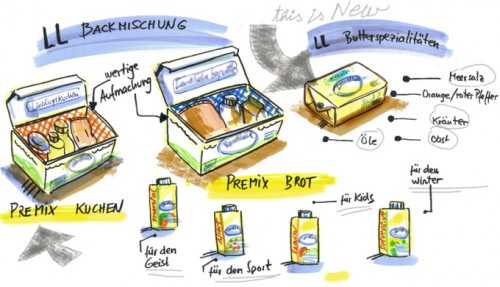 this is New
LL BACKMISCHUNG
LL Butterspezialitäten
wertige
Aufmachung
Lieblingskuchen
Kräuter
Meersalz
Orange/roter Pfeffer
Kräuter
Öle
Obst
PREMIX KUCHEN
PREMIX BROT
für den
Geist
für den Sport
für Kids
für den
Winter